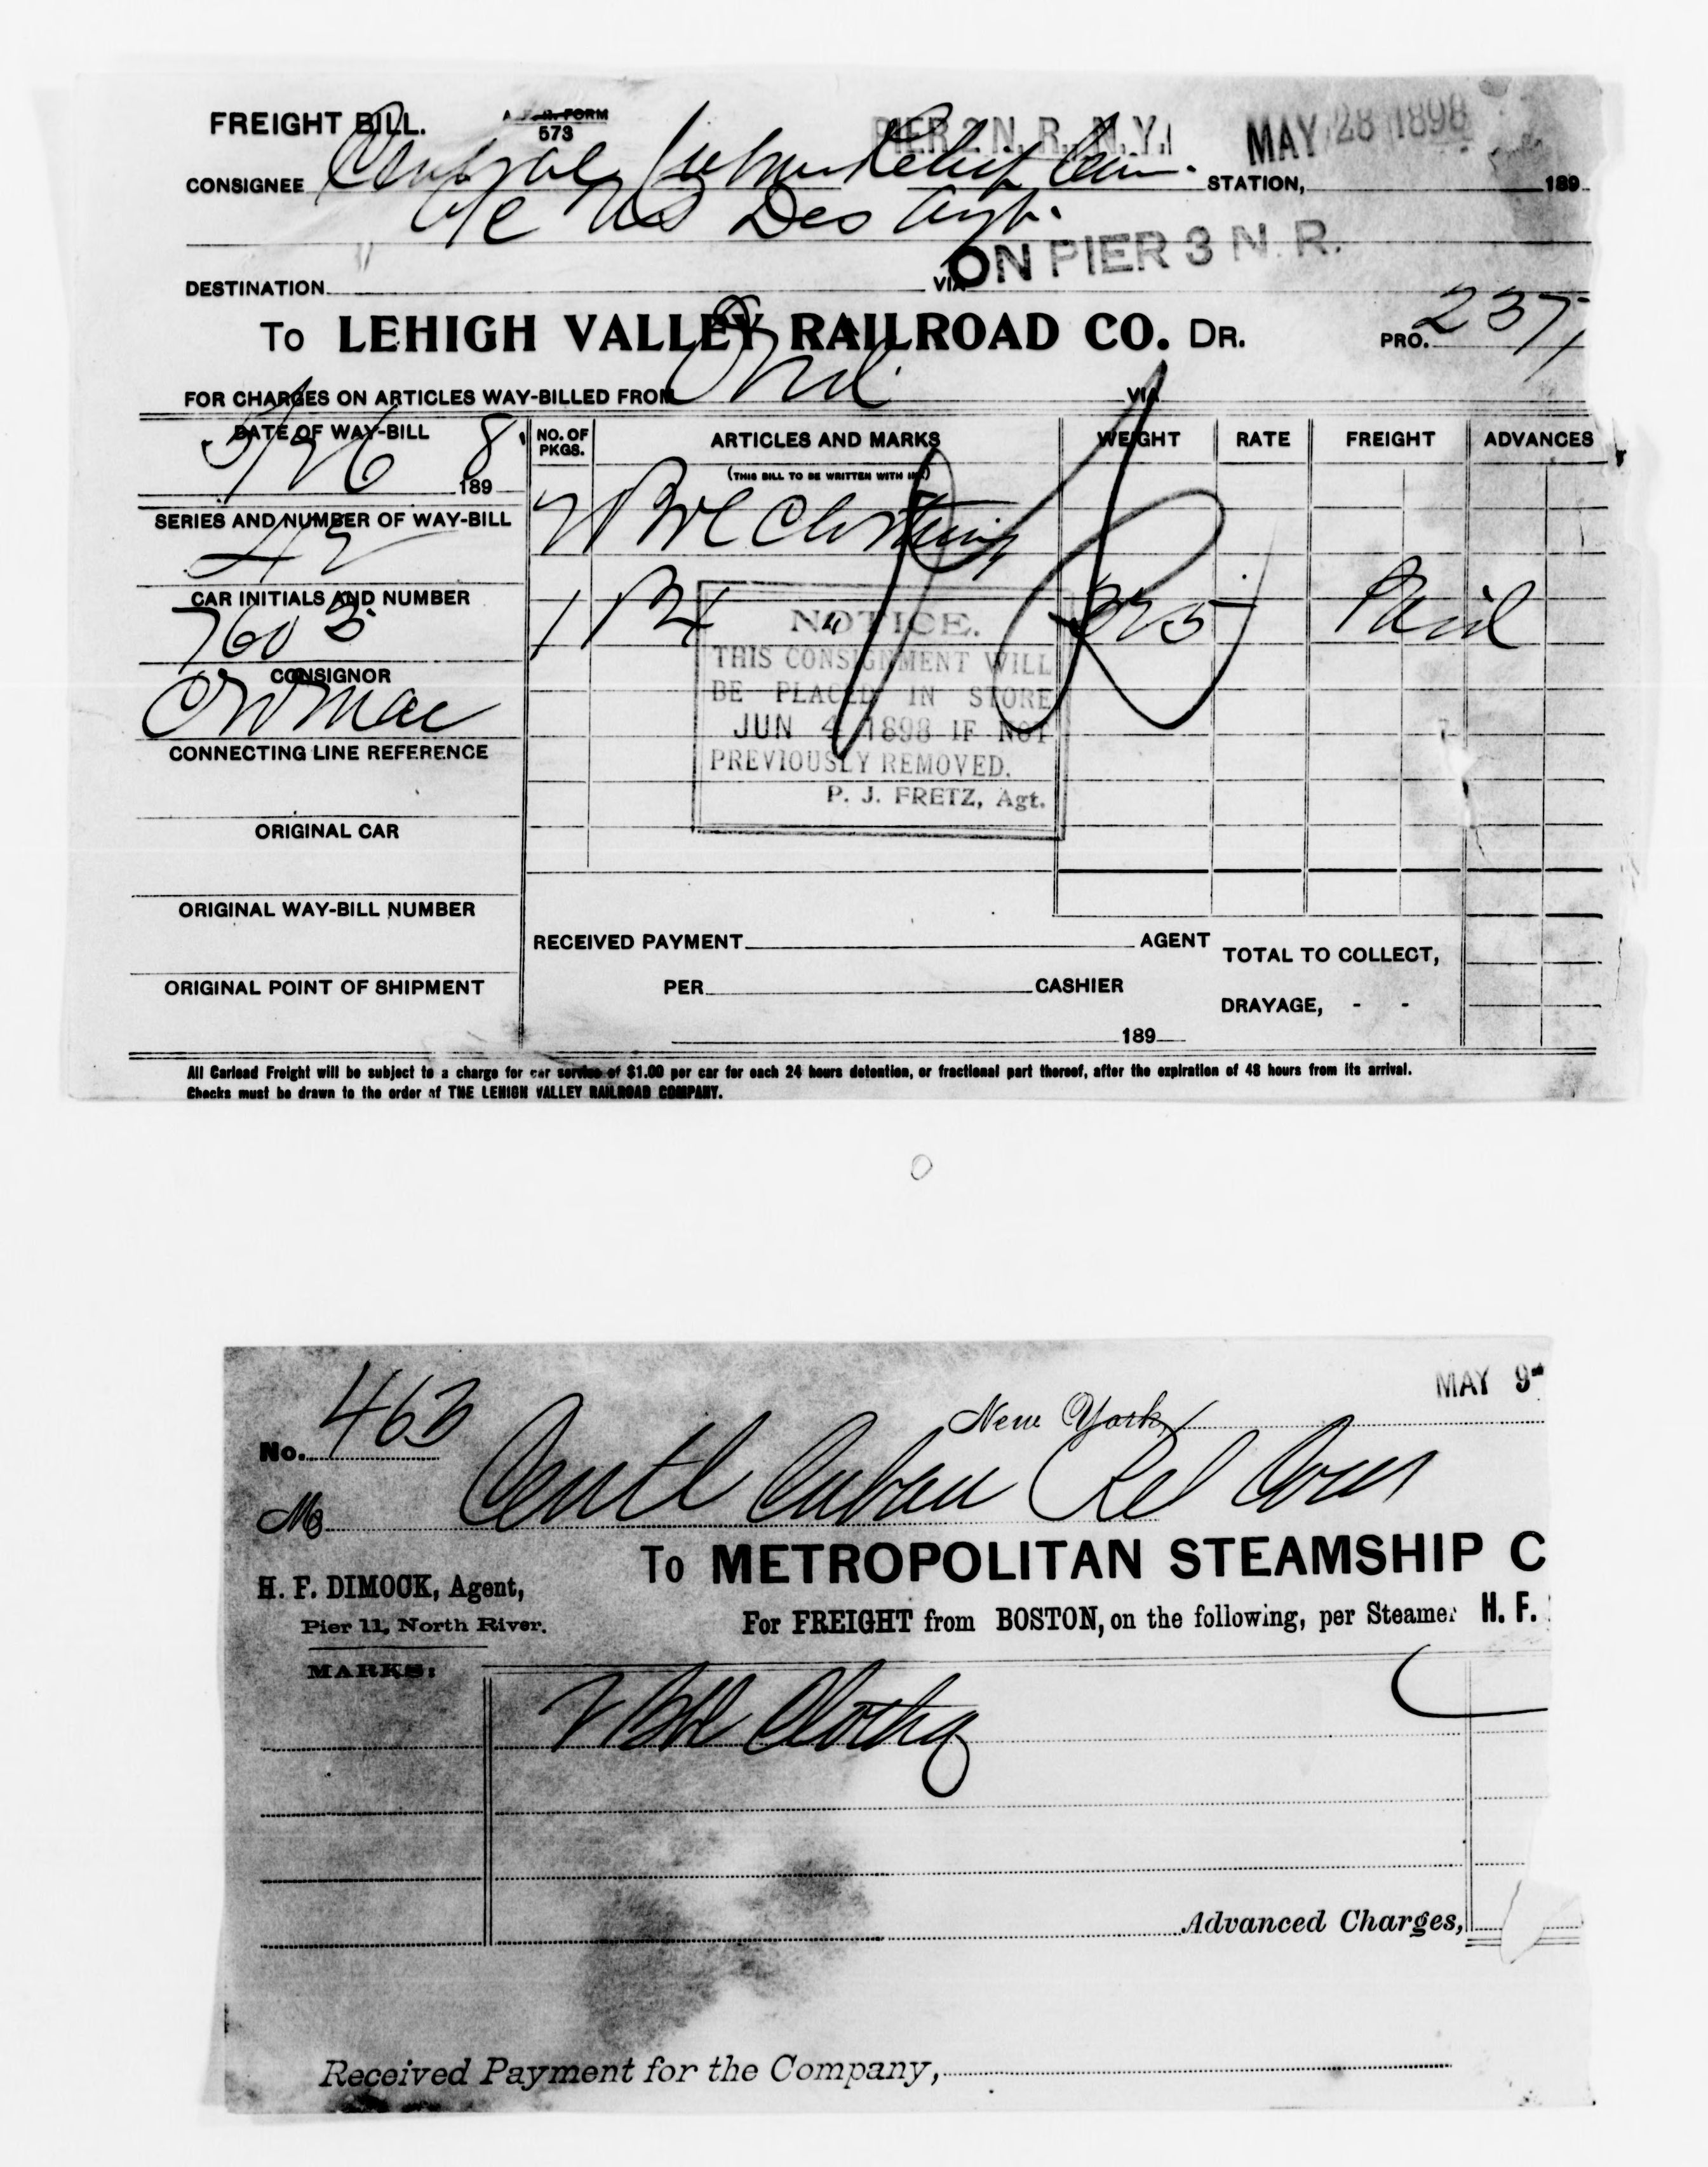 FREIGHT BILL.
FORM
573
PIER 2 N. R., N. Y.
MAY 28 1898
CONSIGNEE Central Cuban Relief Com. STATION, 189
c/c U S Des Agt.
ON PIER 3 N. R.
DESTINATION VIA
To LEHIGH VALLEY RAILROAD CO. DR. PRO. 237
FOR CHARGES ON ARTICLES WAY-BILLED FROM VIA
DATE OF WAY-BILL
5/26 1898
NO. OF PKGS. ARTICLES AND MARKS WEIGHT RATE FREIGHT ADVANCES
(THIS BILL TO BE WRITTEN WITH INK)
2 Bbl Clothing
SERIES AND NUMBER OF WAY-BILL
42
CAR INITIALS AND NUMBER
760
1 Bx " 325 Paid
CONSIGNOR
CONNECTING LINE REFERENCE
NOTICE.
THIS CONSIGNMENT WILL
BE PLACED IN STORE
JUN 4 1898 IF NOT
PREVIOUSLY REMOVED.
P. J. FRETZ, Agt.
ORIGINAL CAR
ORIGINAL WAY-BILL NUMBER
ORIGINAL POINT OF SHIPMENT
RECEIVED PAYMENT AGENT
TOTAL TO COLLECT,
PER CASHIER
DRAYAGE, - -
189
All Carload Freight will be subject to a charge for car service of $1.00 per car for each 24 hours detention, or fractional part thereof, after the expiration of 48 hours from its arrival.
Checks must be drawn to the order of THE LEHIGH VALLEY RAILROAD COMPANY.
MAY 9
New York,
No. 463
M Centl Cuban Rel Com
To METROPOLITAN STEAMSHIP C
H. F. DIMOCK, Agent,
Pier 11, North River.
For FREIGHT from BOSTON, on the following, per Steamer H. F.
MARKS:
2 Bbl Clothg
Advanced Charges,
Received Payment for the Company,